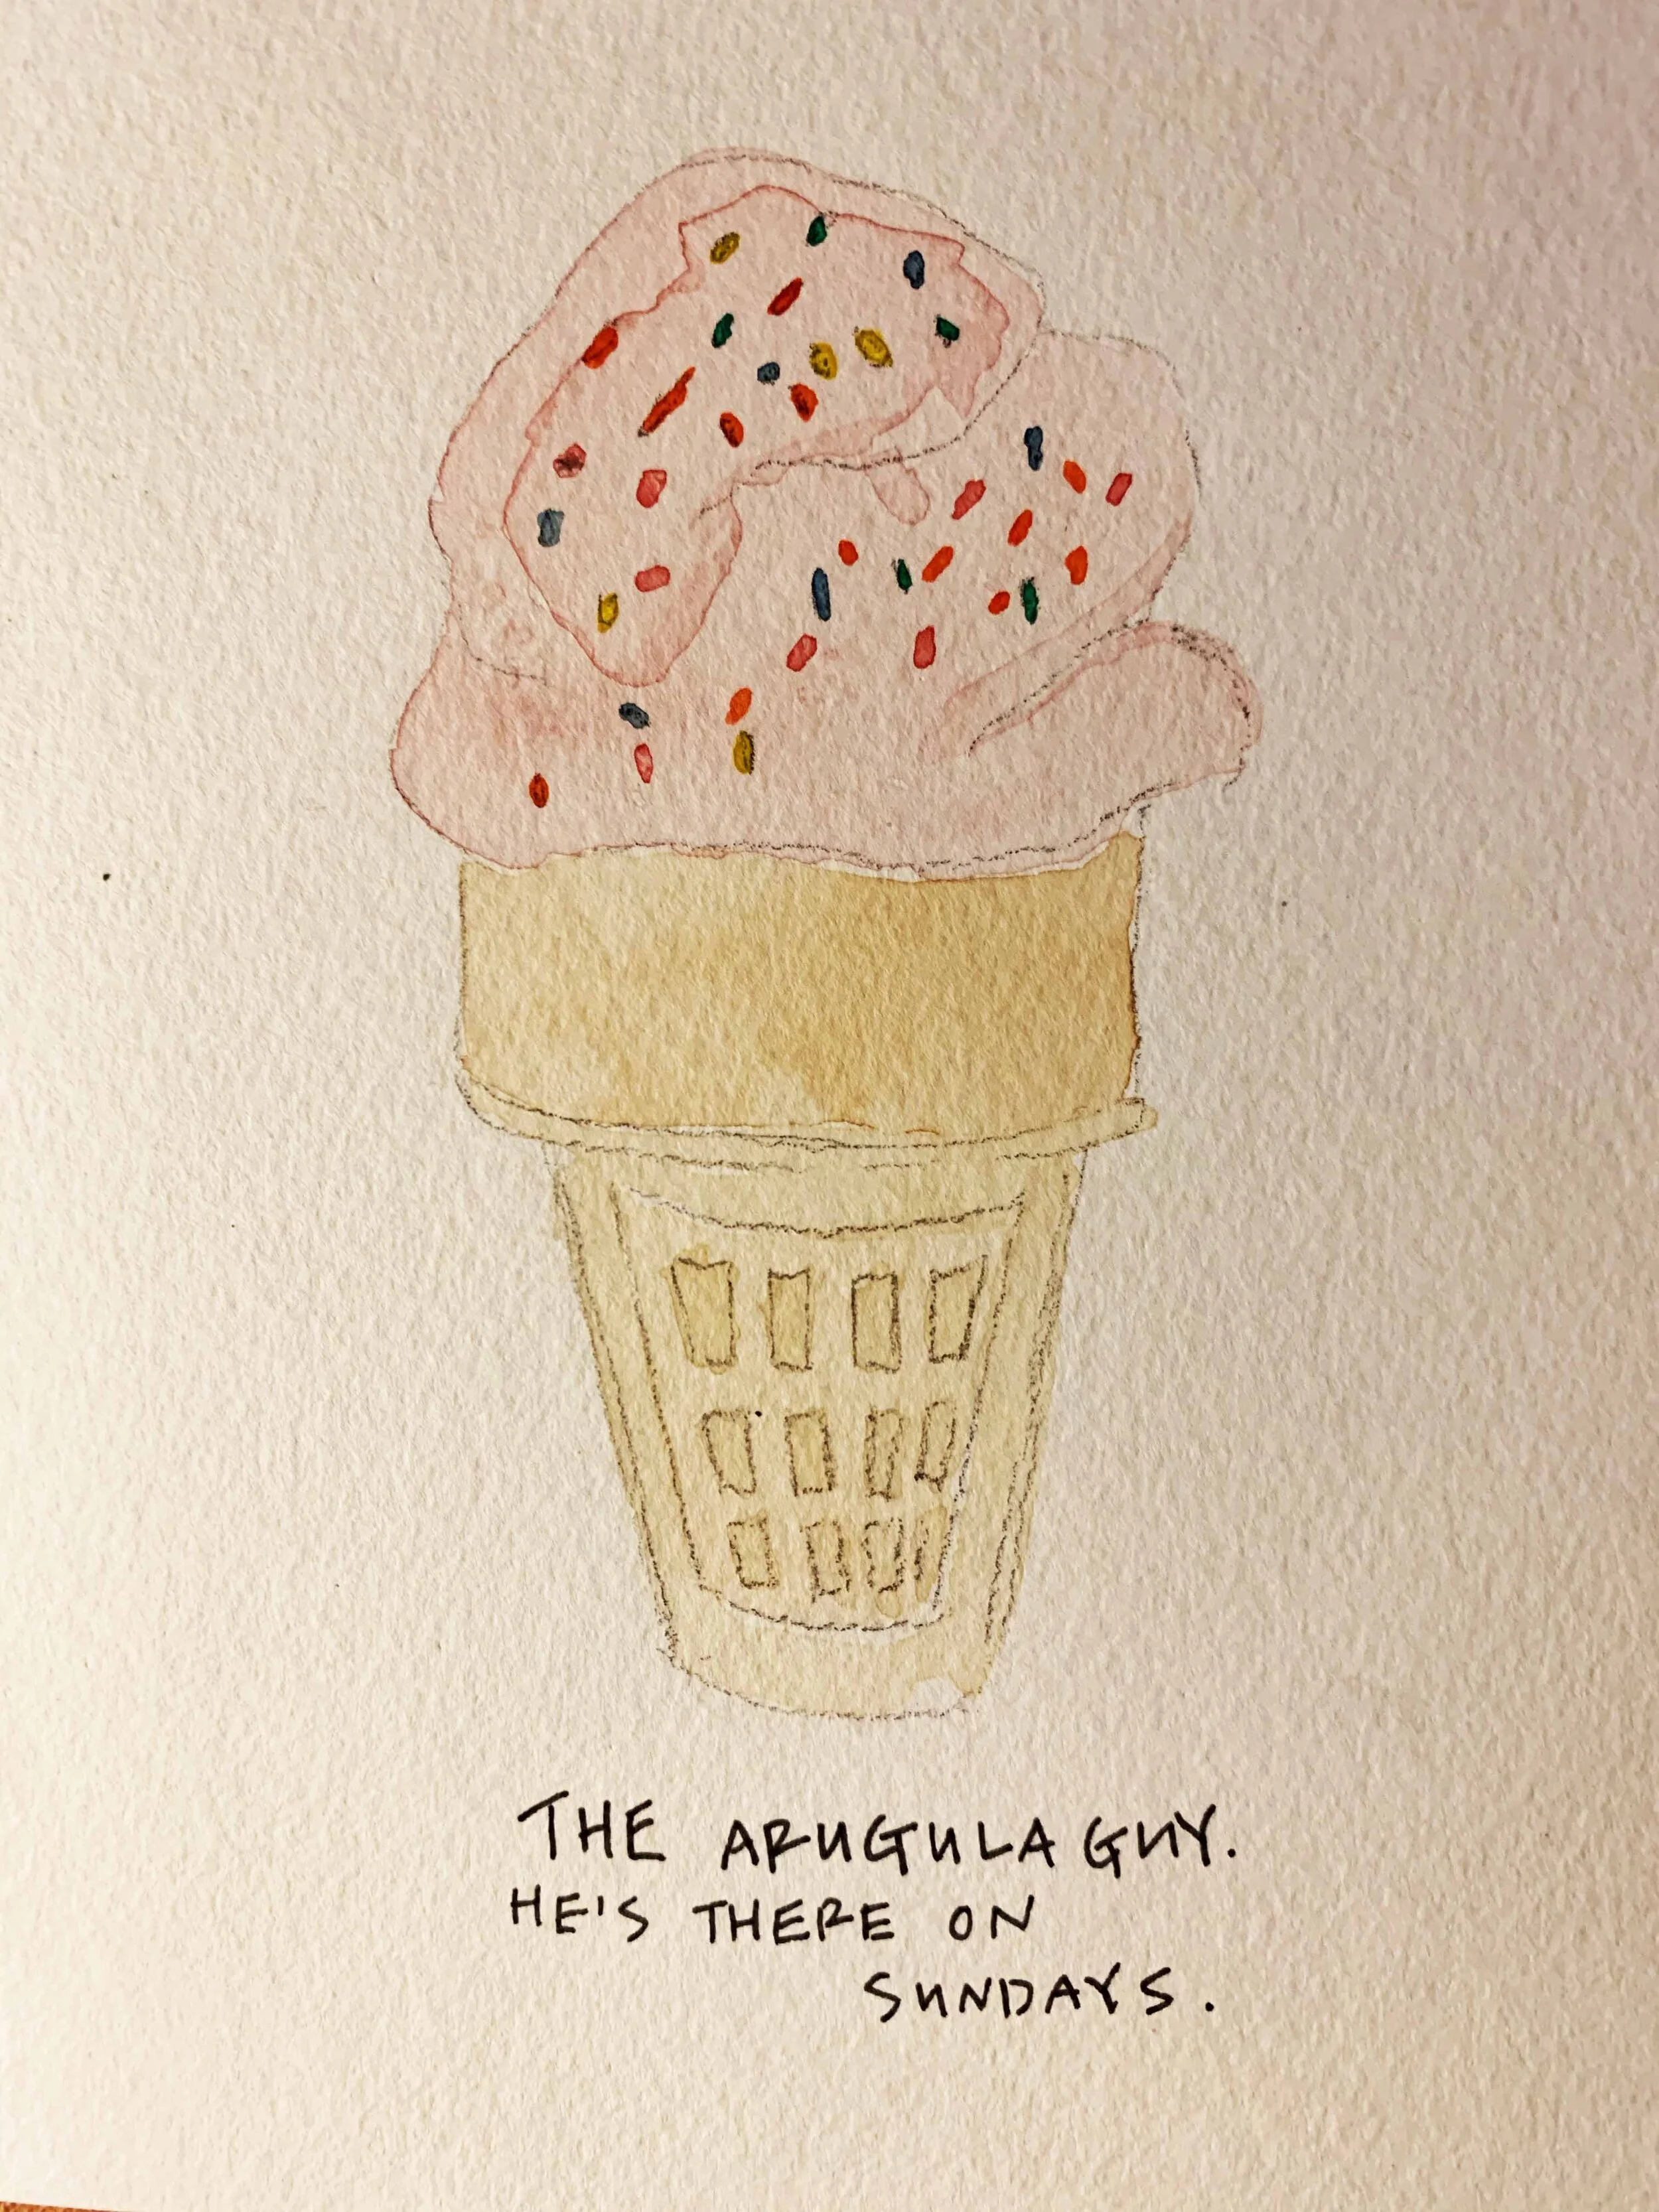 THE ARUGULA GUY.
HE'S THERE ON
SUNDAYS.